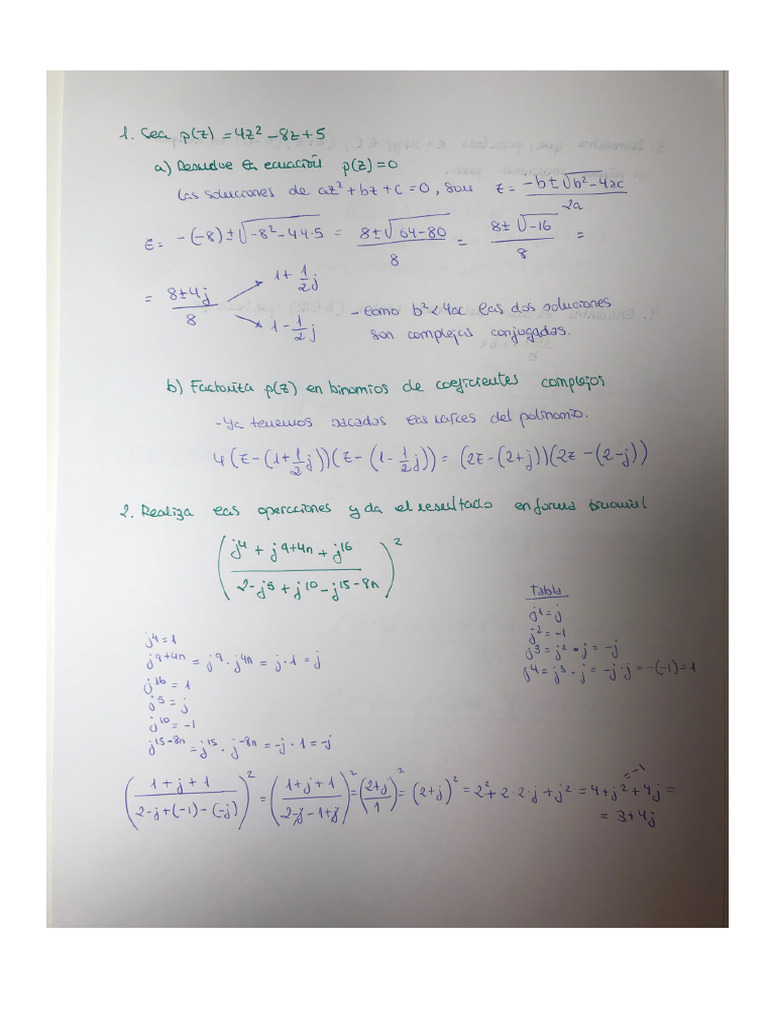 1. Sea p(z) = 4z² - 8z + 5
a) Resuelve la ecuación p(z) = 0
Las soluciones de az² + bz + c = 0, son z = (-b ± √(b² - 4ac)) / 2a
z = -(-8) ± √(-8² - 4·4·5) = (8 ± √(64 - 80)) / 8 = (8 ± √-16) / 8 =
= (8 ± 4j) / 8 → 1 + 1/2 j
→ 1 - 1/2 j
- Como b² < 4ac las dos soluciones
son complejas conjugadas.
b) Factoriza p(z) en binomios de coeficientes complejos
- Ya tenemos sacadas las raíces del polinomio.
4(z - (1 + 1/2 j))(z - (1 - 1/2 j)) = (2z - (2+j))(2z - (2-j))
2. Realiza las operaciones y da el resultado en forma binomial
((j⁴ + j⁹⁺⁴ⁿ + j¹⁶) / (2 - j⁵ + j¹⁰ - j¹⁵⁻⁸ⁿ))²
Tabla
j¹ = j
j² = -1
j³ = j² · j = -j
j⁴ = j³ · j = -j·j = -(-1) = 1
j⁴ = 1
j⁹⁺⁴ⁿ = j⁹ · j⁴ⁿ = j · 1 = j
j¹⁶ = 1
j⁵ = j
j¹⁰ = -1
j¹⁵⁻⁸ⁿ = j¹⁵ · j⁻⁸ⁿ = -j · 1 = -j
((1 + j + 1) / (2 - j + (-1) - (-j)))² = ((1 + j + 1) / (2 - j - 1 + j))² = ((2+j) / 1)² = (2+j)² = 2² + 2·2·j + j² = 4 + j² + 4j =
= -1
= 3 + 4j